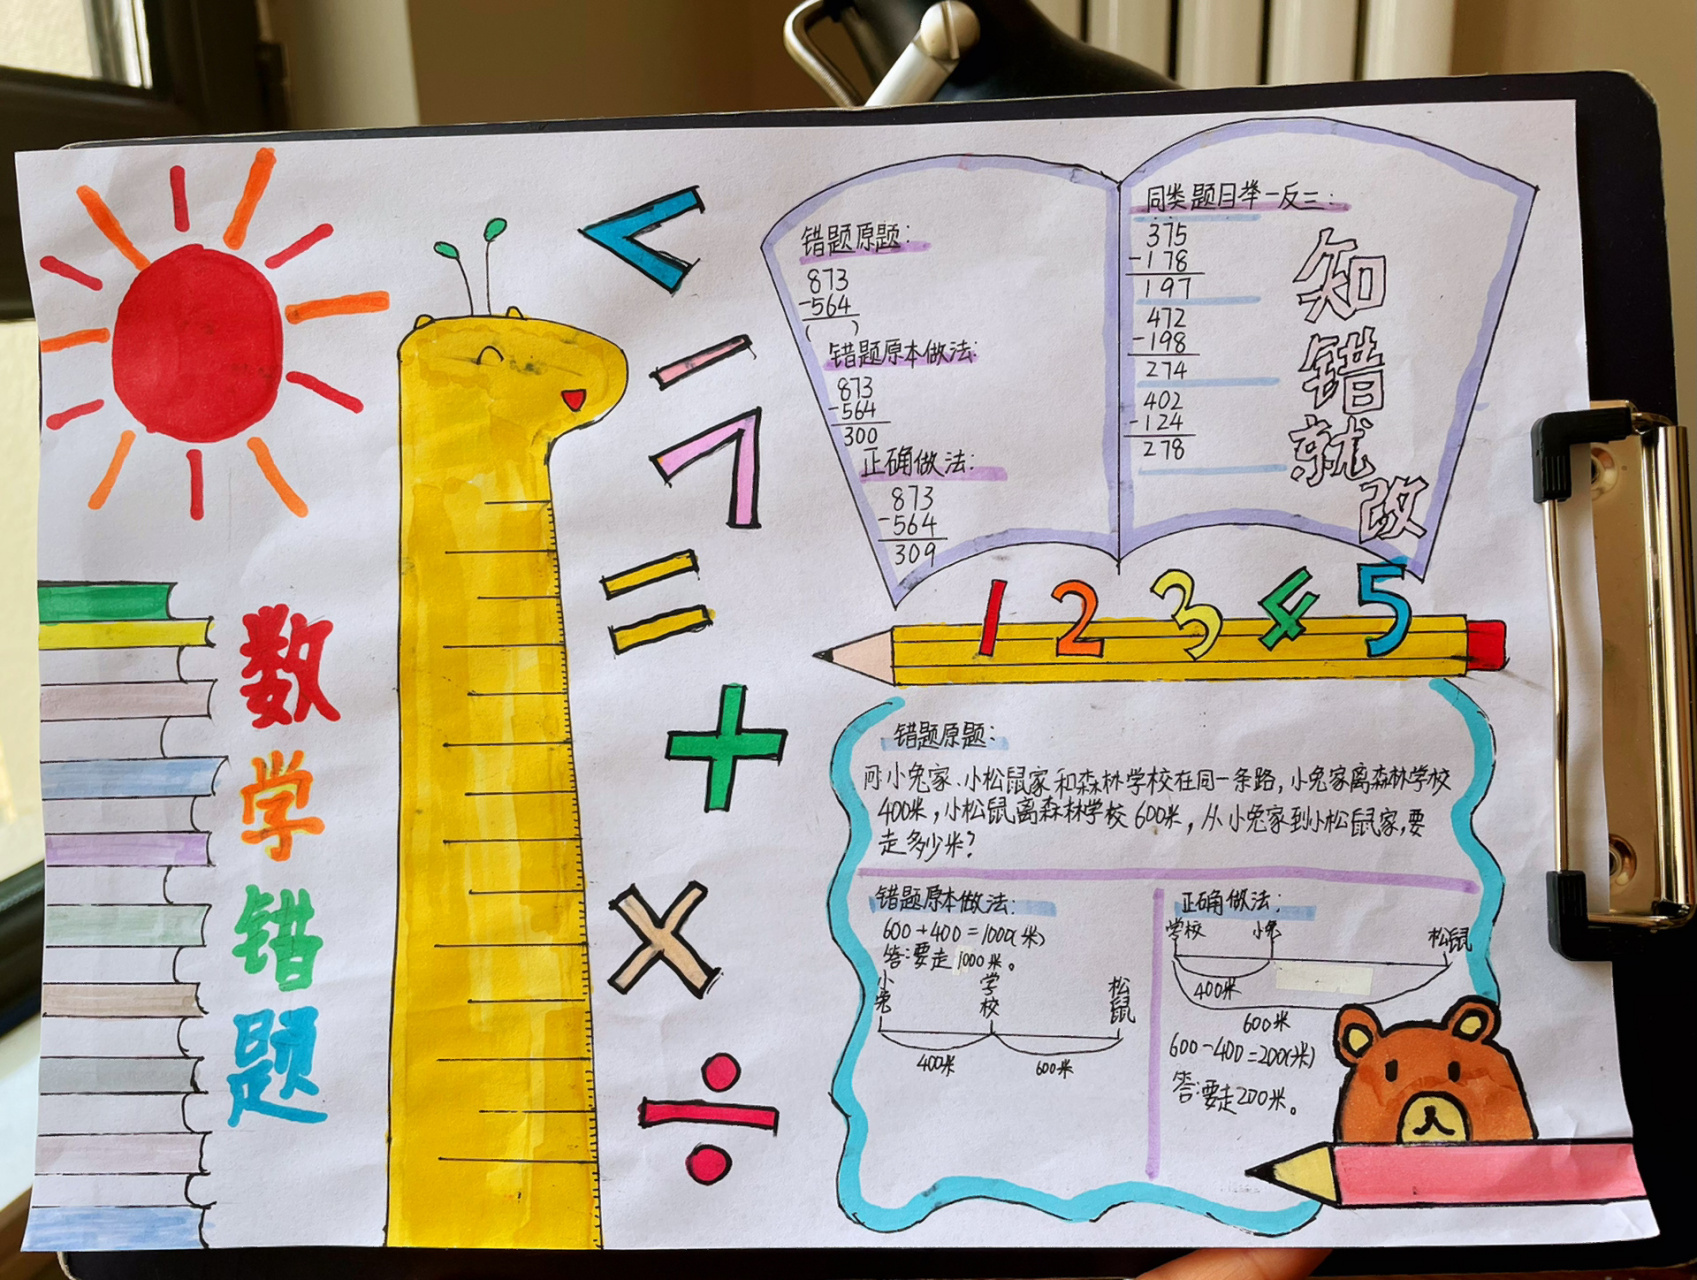 数
学
错
题
<
-
7
=
+
×
÷
错题原题:
873
-564
( )
错题原本做法:
873
-564
300
正确做法:
873
-564
309
同类题目举一反三:
375
-178
197
472
-198
274
402
-124
278
知
错
就
改
1 2 3 4 5
错题原题:
问小兔家、小松鼠家和森林学校在同一条路,小兔家离森林学校
400米,小松鼠离森林学校600米,从小兔家到小松鼠家,要
走多少米?
错题原本做法:
600+400=1000(米)
答:要走1000米。
小兔 学校 松鼠
400米 600米
正确做法:
学校 小兔 松鼠
400米
600米
600-400=200(米)
答:要走200米。